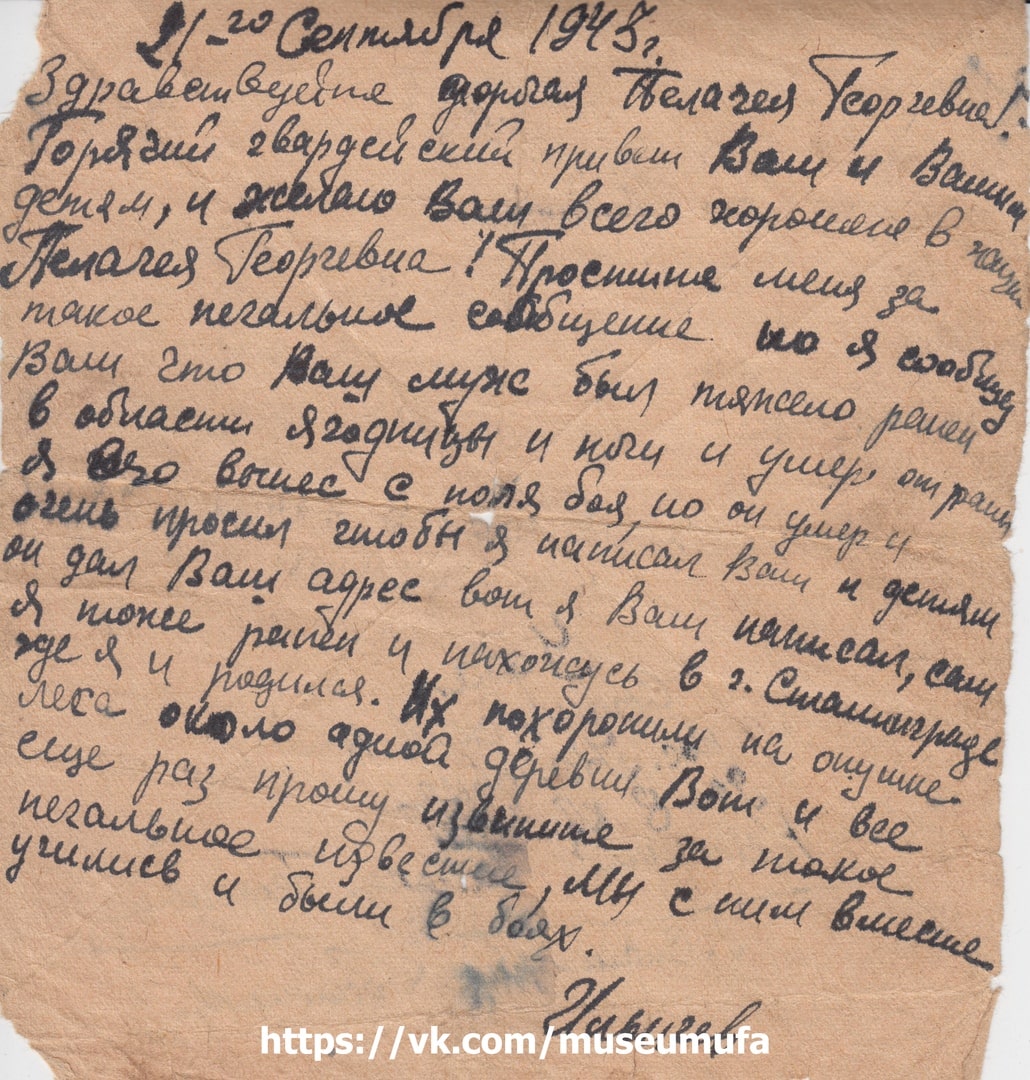 21-го Сентября 1943 г.
Здравствуйте дорогая Пелагея Георгевна!
Горячий гвардейский привет Вам и Вашим
детям, и желаю Вам всего хорошего в
Пелагея Георгевна! Простите меня за
такое печальное сообщение но я сообщу
Вам что Ваш муж был тяжело ранен
в области ягодницы и ноги и умер от раны
я его вынес с поля боя, но он умер и
очень просил чтобы я написал Вам и детям
он дал Ваш адрес вот я Вам написал, сам
я тоже ранен и нахожусь в г. Сталинграде
где я и родился. Их похоронили на опушке
леса около адной деревни Вот и все
еще раз прошу извините за такое
печальное известие, Мы с ним вместе
учились и были в боях.
https://vk.com/museumufa